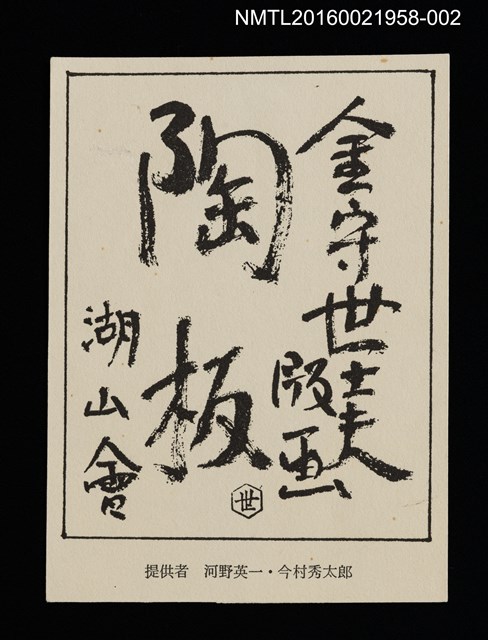 NMTL20160021958-002
金守世士夫
版画
陶板
湖山會
世
提供者　河野英一・今村秀太郎